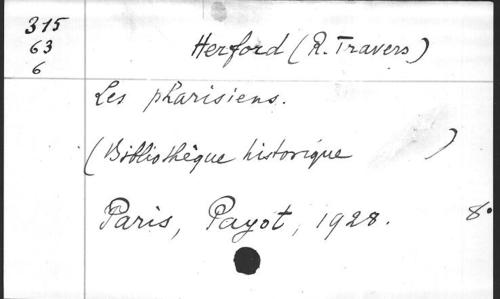 315
63
6
Herford (R. Travers)
Les pharisiens.
(Bibliothèque historique )
Paris, Payot, 1928. 8°